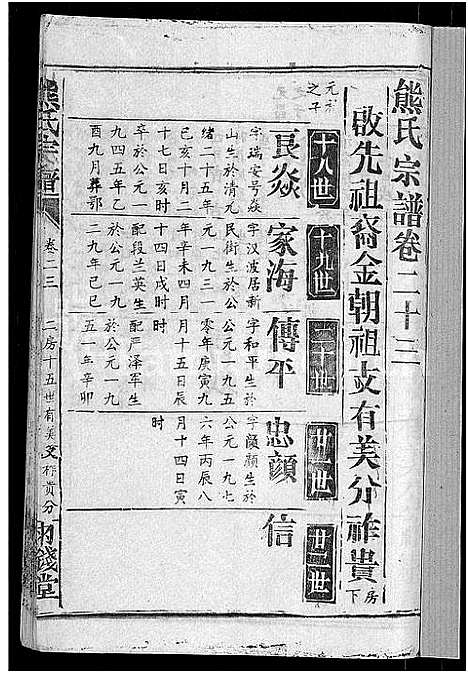 熊氏宗譜卷二十三
啟先祖裔金朝祖支有美分祚貴房下
十八世
十九世
二十世
廿一世
廿二世
元
之子
良焱
字瑞安号焱
山生於清光
緒二十五年
己亥十月二
十七日亥时
卒於公元一
九四五年乙
酉九月葬鄂
家海
字汉波居新
民街生於公
元一九三一
年辛未四月
十四日戌时
配段兰英生
於公元一九
二九年己巳
傳平
字和平生於
公元一九五
零年庚寅九
月十五日辰
时
配严泽军生
於公元一九
五一年辛卯
忠顔
字顔顔生於
公元一九七
六年丙辰八
月十四日寅
时
信
熊氏宗譜
卷二三
二房十五世有美支祚贵分